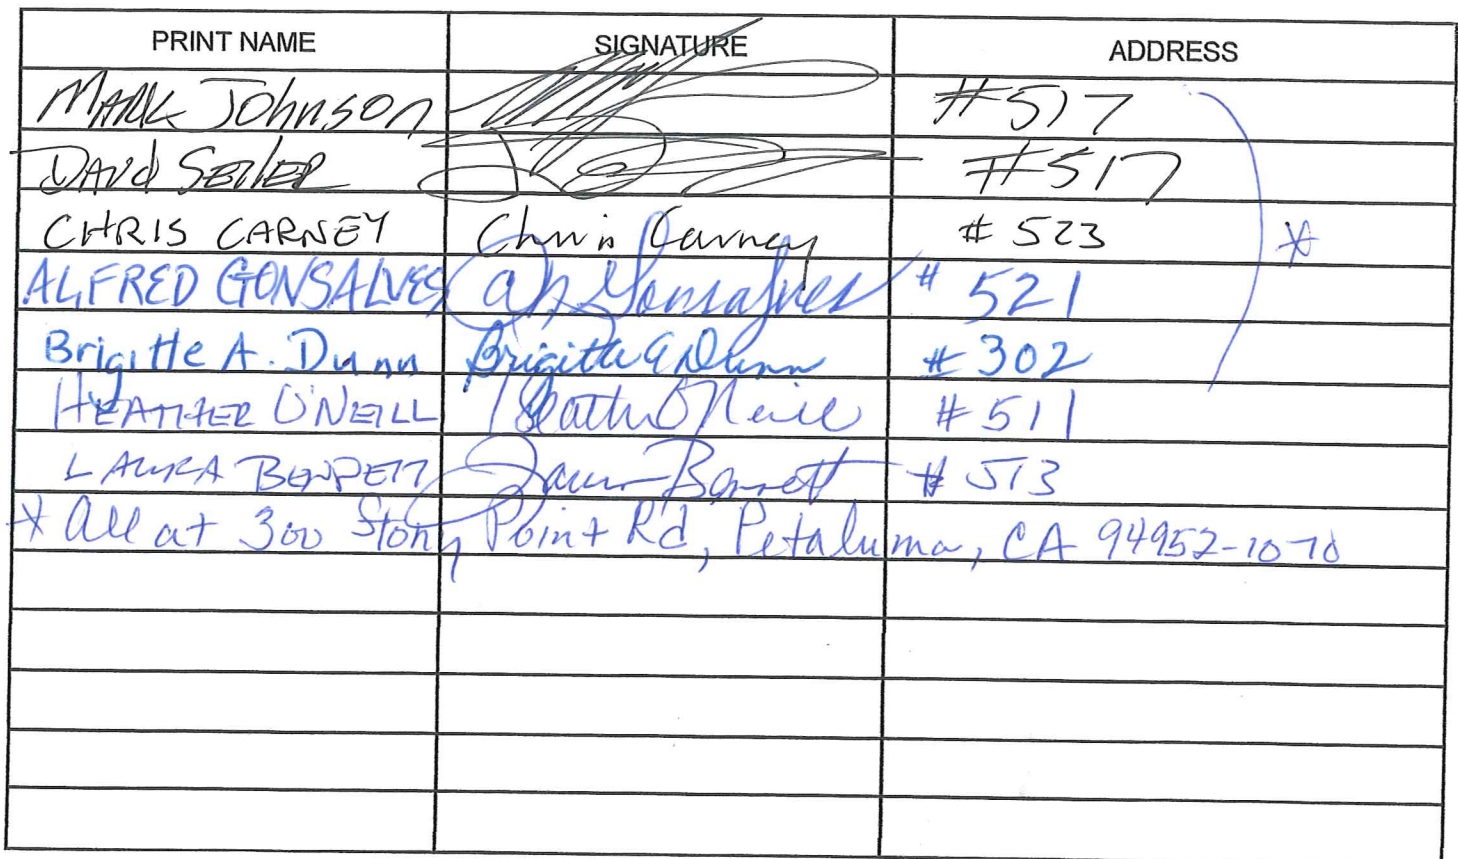 PRINT NAME SIGNATURE ADDRESS
MARK JOhnson #517
DAVID SEILER #517
CHRIS CARNEY Chris Carney #523
ALFRED GONSALVES Gonsalves #521
Brigitte A. Dunn Brigitte A Dunn #302
HEATHER O'NEILL Heather O'Neill #511
LAURA BENNETT Laura Bennett #513
* All at 300 Stony Point Rd, Petaluma, CA 94952-1070
*